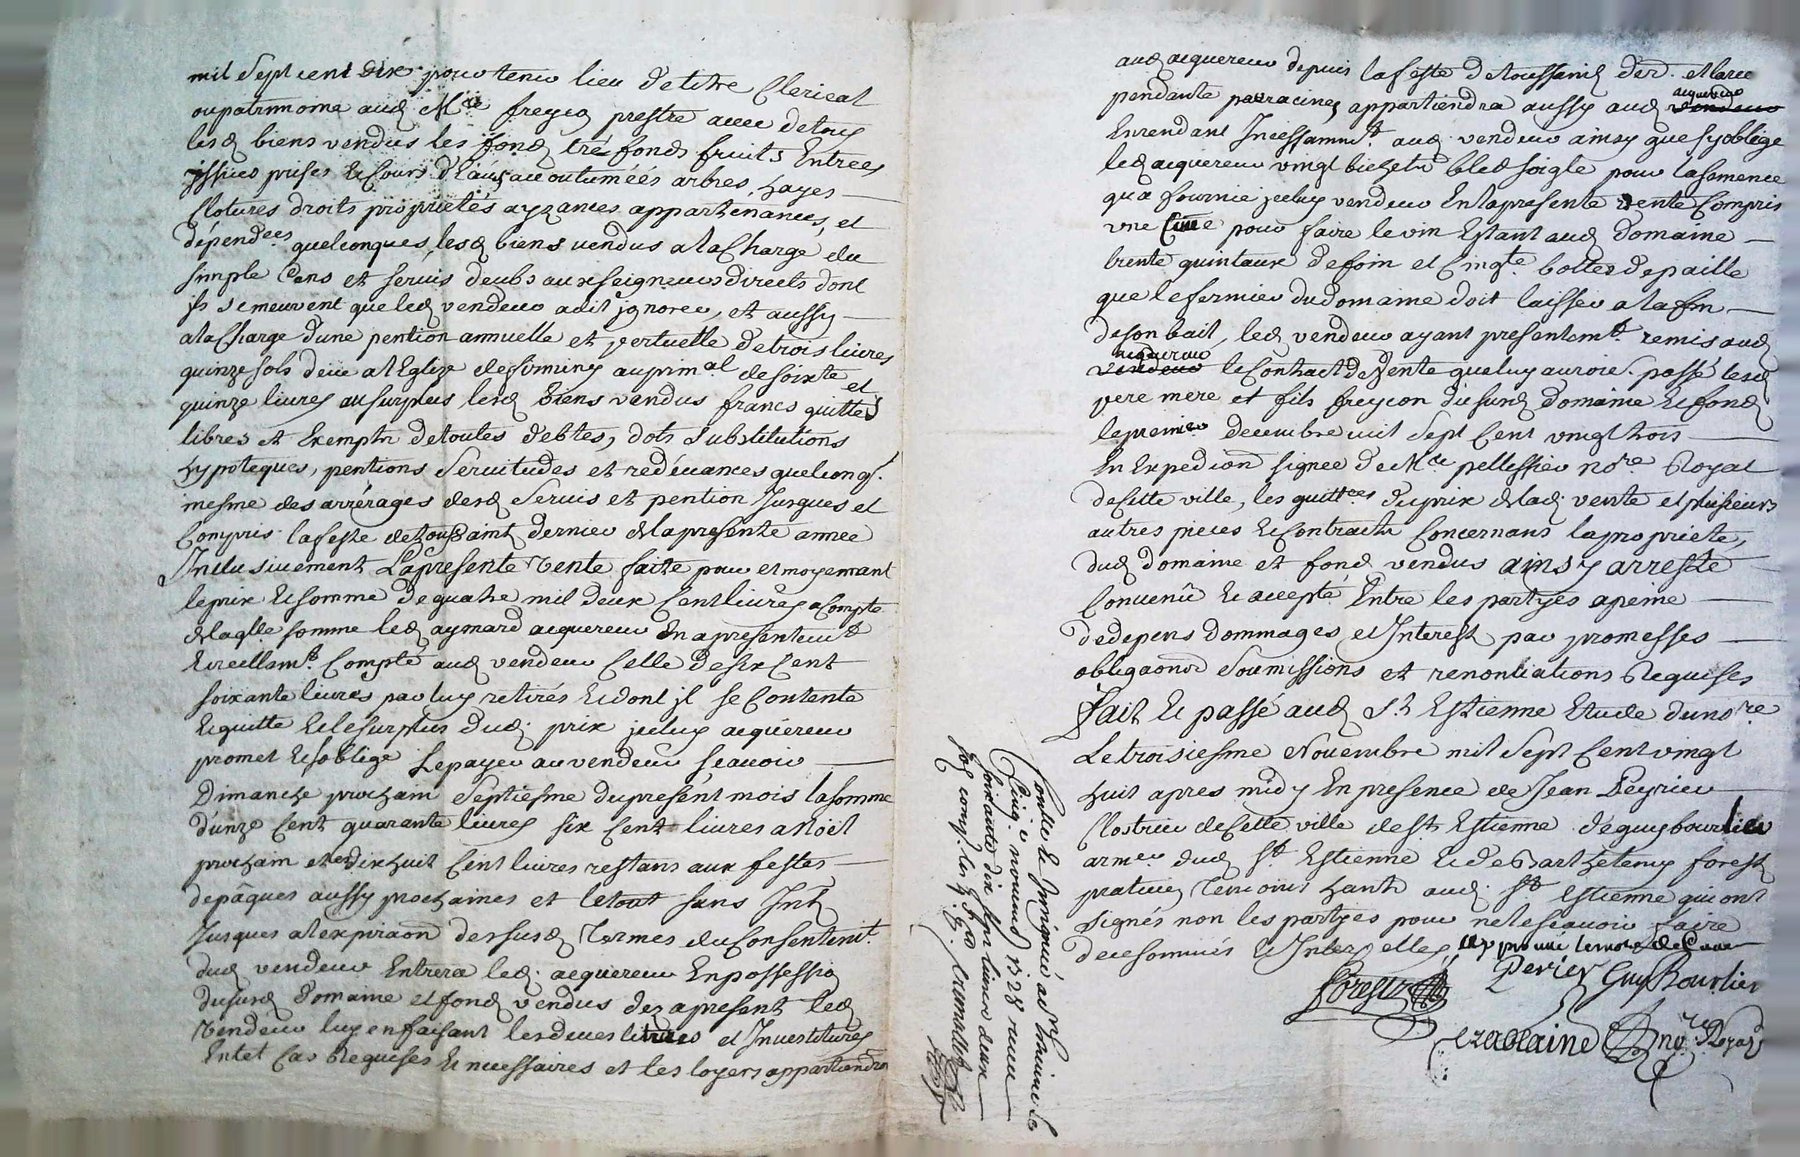 mil Sept cent dix pour tenir lieu de titre Clerical
ou patrimoine aud Mre freycon prestre avec de tous
lesd biens vendus les fond tré fonds fruits Entrées
issues prises et Cours d'éau accoutumées arbres hayes
Clotures droits proprietés ayzances appartenances et
dépendces quelconques, lesd biens vendus a la Charge du
simple Cens et servis deubs aux seigneurs directs dont
ils se meuvent que led vendeur a dit jgnorer, et aussy
a la Charge d'une pention annuelle et perpetuelle de trois livres
quinze sols deüe a l'Eglize de au prinal de soixte et
quinze livres au surplus lesd biens vendus francs quittes
libres et Exempts de toutes debtes, dots substitutions
hypoteques, pentions servitudes et redévances quelconqs.
mesme des arrérages desd servis et pention Jusques et
Compris la feste de toussaint dernier de la presente année
Inclusivement La presente Vente faite pour et moyennant
le prix et somme de quatre mil deux Cent livres a Compte
de laqlle somme led aymard acquereur En a presentemt
et reellemt. Compté aud vendeur Celle de six Cent
soixante livres par luy retirés et dont jl se Contente
et quitte et le surplus dud. prix jceluy acquéreur
promet et s'oblige Le payer au vendeur scavoir
Dimanche prochain septiesme du present mois la somme
d'unze Cent quarante livres six Cent livres a Noël
prochain et les dix huit Cent livres restans aux festes
de pâques aussy prochaines et le tout sans Int
Jusques a l'expiraon desusd Termes du Consentemt.
dud vendeur Entrera led. acquereur En possession
dusud domaine et fond vendus dez a present led
Vendeur luy en faisant les devestitures et Investitures
En tel Cas Requises et necessaires et les loyers appartiendron
aud acquereur depuis la feste de toussaint der. et la rec
pendante par racines appartiendra aussy aud acquereur
En rendant Incessammt. aud. vendeur ainsy que s'y oblige
led acquereur vingt bichets bled soigle pour la semence
qu'a fournie jceluy vendeur En la presente Vente Compris
une Cuve pour faire le vin Estant aud domaine
trente quintaux de foin et Cinqte bottes de paille
que le fermier du domaine doit laisser a la fin
de son bail, led vendeur ayant presentemt remis aud
acquereur le Contract de Vente que luy auroie. passé lesd
pere mere et fils freycon du susd domaine et fond
le premier decembre mil sept Cent vingt trois
En Expedion signée de Me pellessier nore Royal
de Cette ville, les quittces du prix de lad. vente et plusieurs
autres pieces et Contracts Concernans la proprieté
dud domaine et fond vendus ainsy arresté
Convenû et accepté Entre les partyes a peine
de depens dommages et Interest par promesses
obligaons soumissions et renontiations Requises
fait et passé aud St Estienne Etude du nore
Le troisiesme Novembre mil Sept Cent vingt
huit apres midy En presence de Jean Peyrier
Clostrier de Cette ville de St Estienne de guy bourlier
armer dud St Estienne et de Barthelemy forest
praticien Temoins hants aud. St Estienne qui ont
signés non les partyes pour ne le scavoir faire
de ce sommés et Interpellés
Perier Guy Bourlier
forest
Chablaine nore Royal
Controllé et Insinué a St Etienne le
Cinq. novemb 1728 receu
soixante dix sept livres deux
sols comp. les